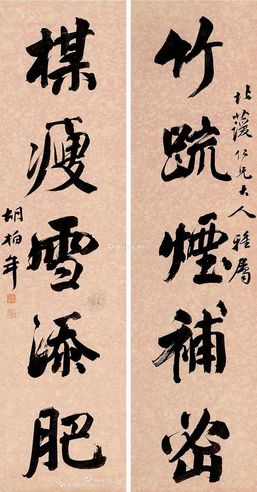 竹疏煙補密
仁兄大人雅屬
楳瘦雪添肥
胡柏年